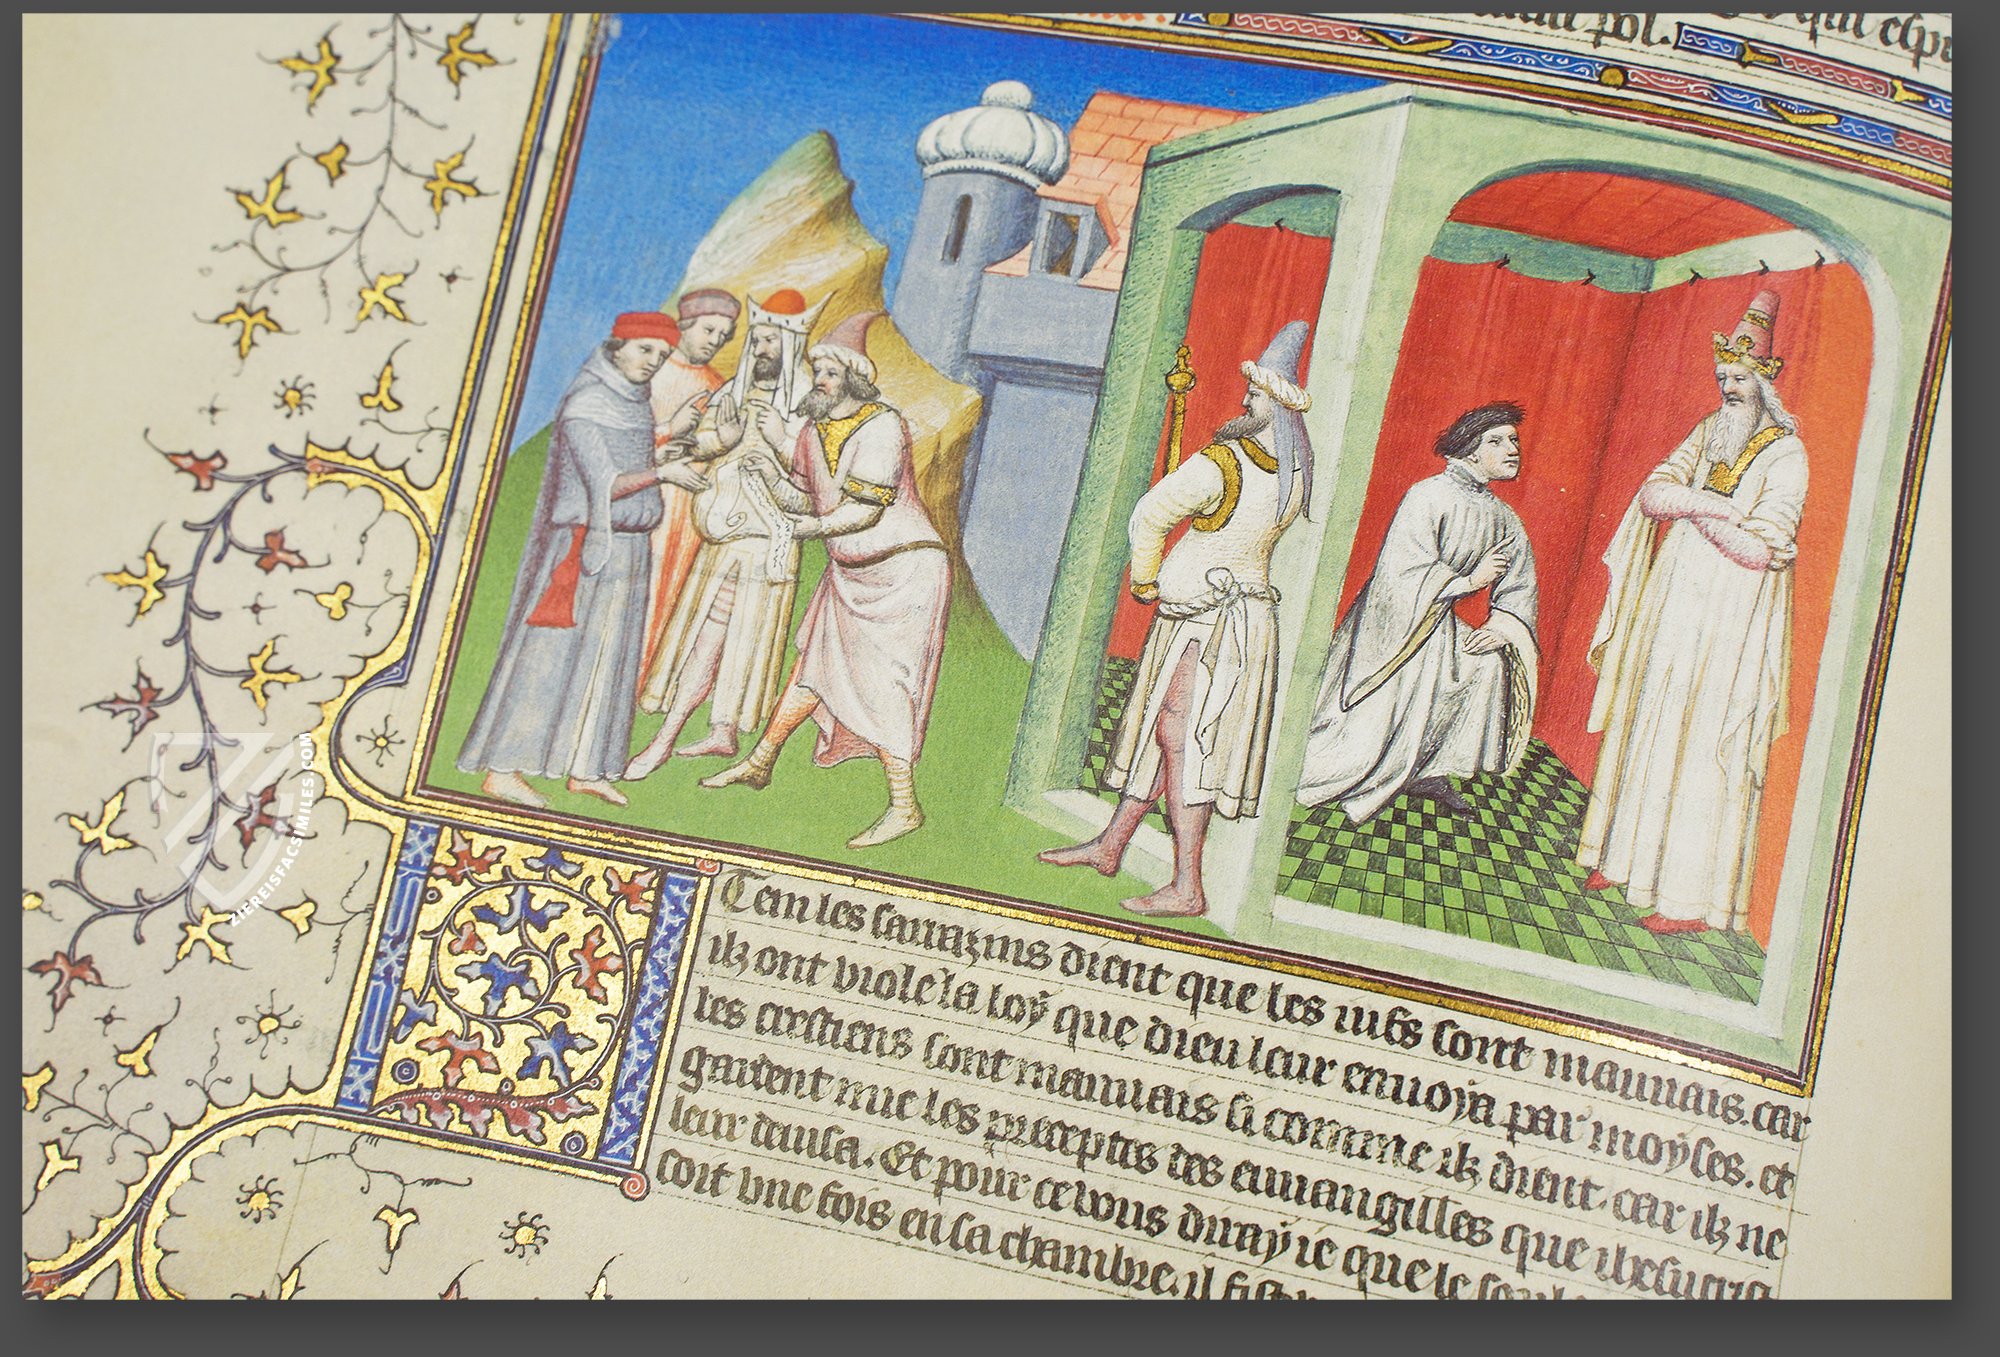 qui
pol.
Tem les sarrazins dient que les iuifs sont mauuais. car
ilz ont viole la loy que dieu leur enuoya par moyses. et
les crestiens sont mauuais si comme ilz dient. car ilz ne
gardent mie les preceptes des euuangilles que ihesucrist
leur deuisa. Et pour ce vous diray ie que le
soit vne fois en sa chambre. il fist
ZIEREISFACSIMILES.COM